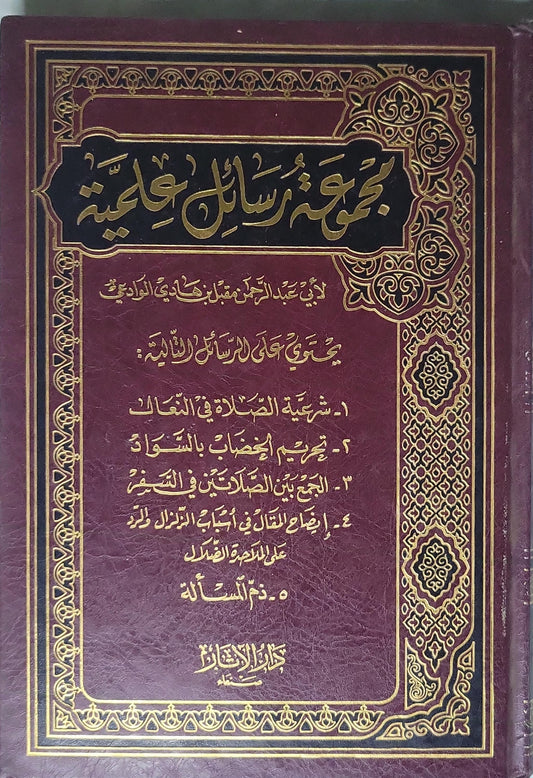 مجموعة رسائل علميَّة
لأبي عبد الرحمن مقبل بن هادي الوادعي
يحتوي على الرسائل التالية :
١ - شرعية الصلاة في النعال
٢ - تحريم الخضاب بالسواد
٣ - الجمع بين الصلاتين في السفر
٤ - إيضاح المقال في أسباب الزلزال والرد
على الملاحدة الضلال
٥ - ذم المسألة
دار الآثار
صنعاء